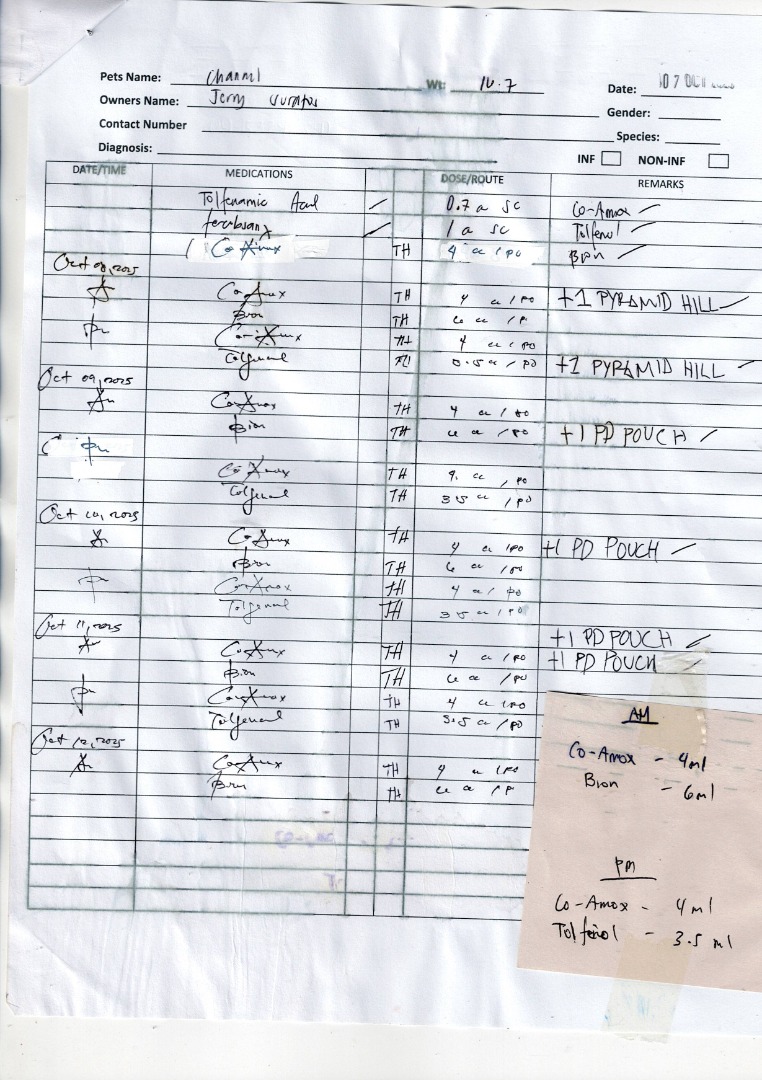 Pets Name: Wt: 10.7 Date: 07 OCT
Owners Name: Jerry Gender:
Contact Number Species:
Diagnosis: INF NON-INF
DATE/TIME MEDICATIONS DOSE/ROUTE REMARKS
Tolfenamic Acid 0.7 a SC Co-Amox
1 a SC Tolfenol
Co Amox TH 4 cc / po Bion
Oct 08, 2025
Am Co-Amox TH 4 cc / po +1 PYRAMID HILL
Bion TH
pm Co-Amox TH 4 cc / po
Tolfenol TH cc / po +1 PYRAMID HILL
Oct 09, 2025
Am Co-Amox TH 4 cc / po
Bion TH cc / po +1 PD POUCH
pm
Co-Amox TH 4 cc / po
Tolfenol TH 3.5 cc / po
Oct 10, 2025
Am Co-Amox TH 4 cc / po +1 PD POUCH
Bion TH 6 cc / po
pm Co-Amox TH 4 cc / po
Tolfenol TH 3.5 cc / po
Oct 11, 2025 +1 PD POUCH
Am Co-Amox TH 4 cc / po +1 PD POUCH
Bion TH cc / po
pm Co-Amox TH 4 cc / po
Tolfenol TH 3.5 cc / po
Oct 12, 2025
Am Co-Amox TH 4 cc / po
Bion TH
AM
Co-Amox - 4ml
Bion - 6ml
PM
Co-Amox - 4ml
Tolfenol - 3.5 ml